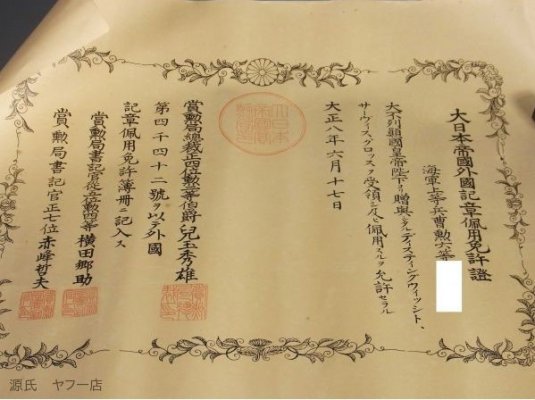 大日本帝國外國記章佩用免許證
海軍上等兵曹勲六等
大不列顛國皇帝陛下ヨリ贈與シタルディスティングウィッシト、
サーウィスクロッスヲ受領シ及ヒ佩用スルヲ允許セラル
大正八年六月十七日
賞勲局總裁正四位勲二等伯爵兒玉秀雄
第四千四十二號ヲ以テ外國
記章佩用免許簿冊ニ記入ス
賞勲局書記官從五位勲四等橫田郷助
賞勲局書記官正七位赤峰哲夫
源氏 ヤフー店